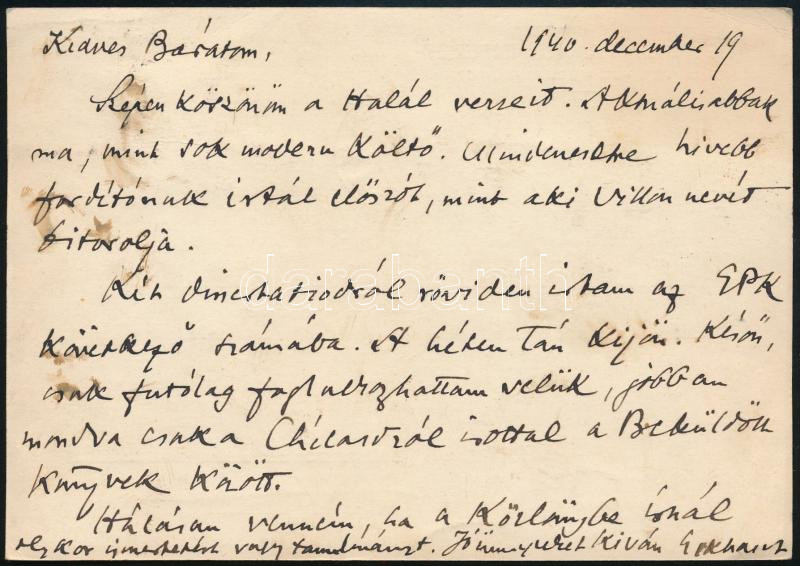 Kedves Barátom, 1940. december 19
Szépen köszönöm a Halál verseit. Aktuálisabbak
ma, mint sok modern költő. Mindenesetre hivebb
fordítónak írtál előszót, mint aki Villon nevét
bitorolja.
Két disszertatiodról röviden irtam az EPK
következő számába. A héten tán kijön. Késön,
csak futólag foglalkozhattam velük, jobban
mondva csak a Beküldött
könyvek között.
Hálásan venném, ha a Közlönybe írnál
olykor ismertetést vagy tanulmányt. Jó ünnepeket kíván Eckhardt
darabanth